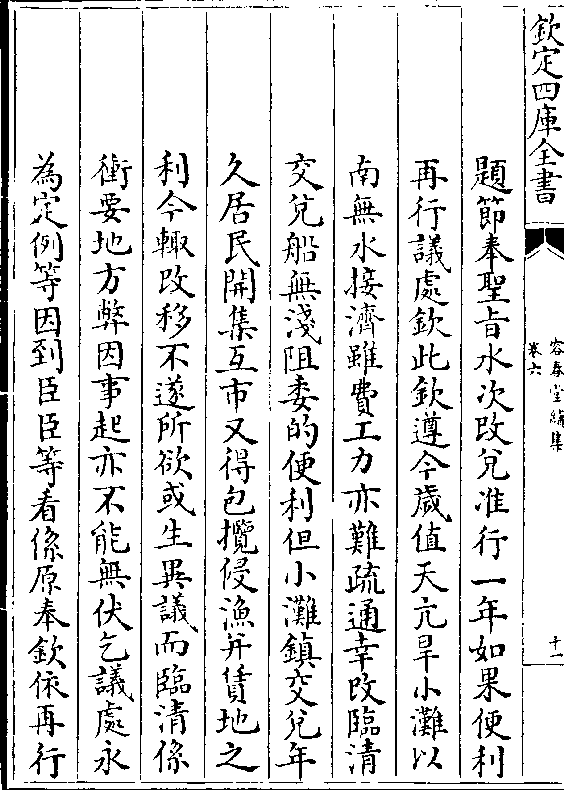 欽定四庫全書
容春堂續集
卷六
十一
題節奉聖旨水次改兌准行一年如果便利
再行議處欽此欽遵今歲值天亢旱小灘以
南無水接濟雖費工力亦難疏通幸改臨清
交兌船無淺阻委的便利但小灘鎮交兌年
久居民開集互市又得包攬侵漁并賃地之
利今輙改移不遂所欲或生異議而臨清係
衝要地方弊因事起亦不能無伏乞議處永
為定例等因到臣臣等看係原奉欽依再行